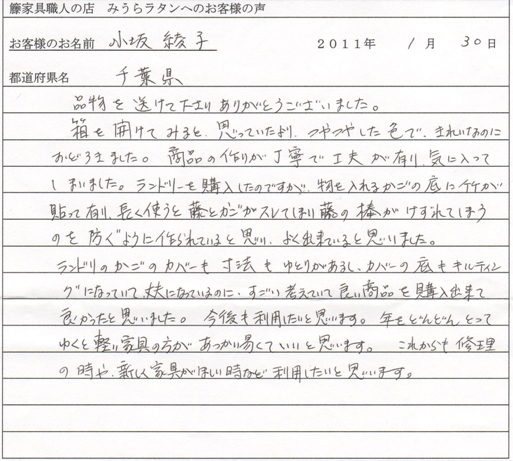 籐家具職人の店　みうらラタンへのお客様の声
お客様のお名前　小坂 綾子　2011年 1月 30日
都道府県名　千葉県
品物を送けて下さりありがとうございました。
箱を開けてみると、思っていたより、つやつやした色で、きれいなのに
おどろきました。商品の作りが丁寧で工夫が有り、気に入って
しまいました。ランドリーを購入したのですが、物を入れるかごの底に竹が
貼って有り、長く使うと藤とカゴがスレてしまい藤の棒がけずれてしまう
のを防ぐように作られていると思い、よく出来ていると思いました。
ランドリのかごのカバーも寸法もゆとりがあるし、カバーの底もキルティン
グになっていて、丈夫になっているのに、すごい考えていて良い商品を購入出来て
良かったと思いました。今後も利用したいと思います。年をどんどんとって
ゆくと軽い家具の方があつかい易くていいと思います。これからも修理
の時や、新しく家具がほしい時など利用したいと思います。